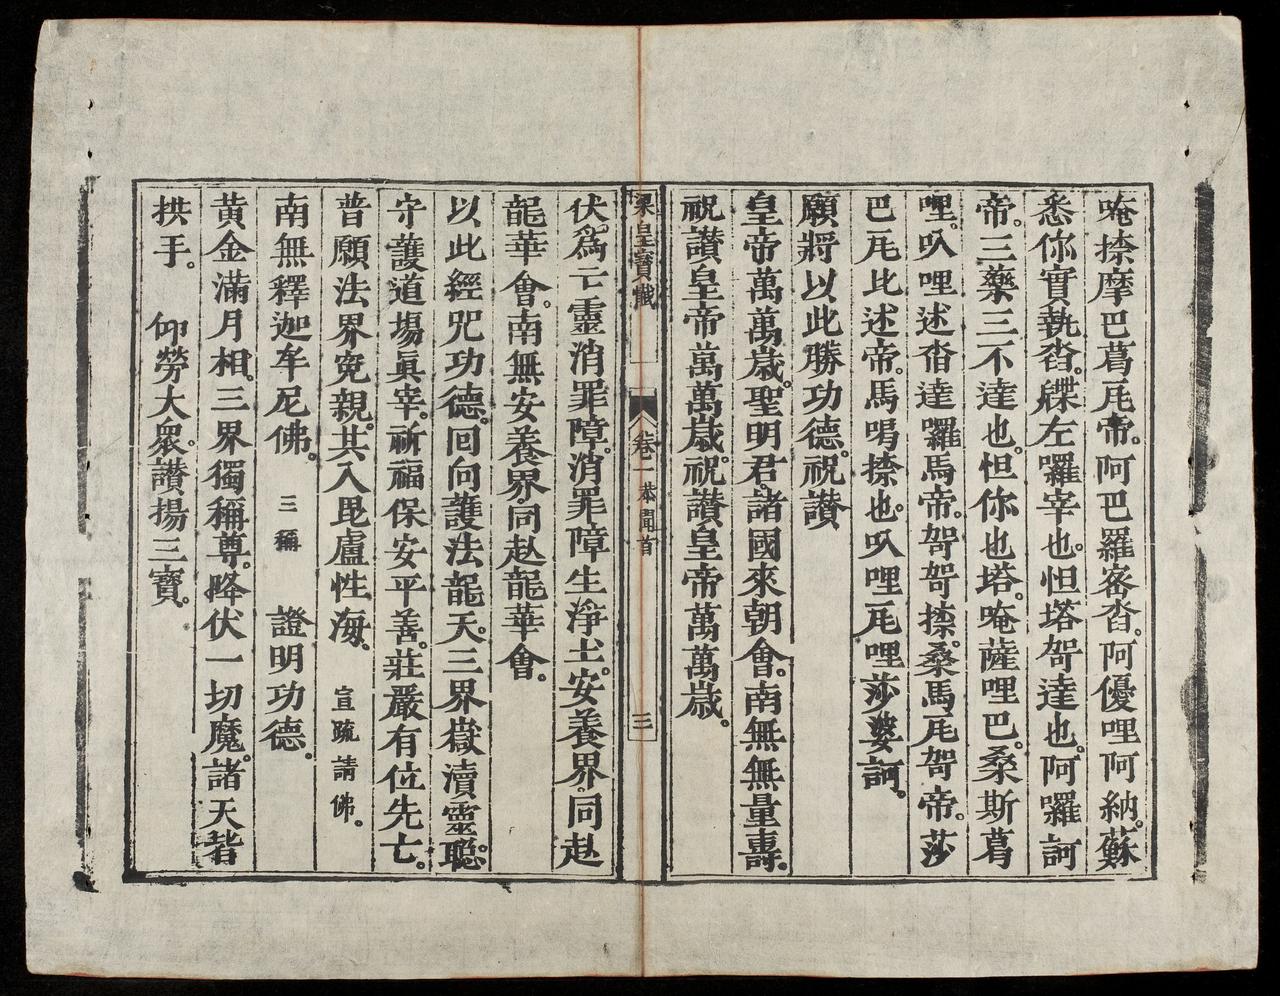 唵捺摩巴葛瓦帝。阿巴羅密沓。阿優哩阿納。蘇
悉你實執沓。牒左囉宰也。怛塔哿達也。阿囉訶
帝。三藥三不達也。怛你也塔。唵薩哩巴。桑斯葛
哩。叺哩述沓達囉馬帝。哿哿捺。桑馬瓦哿帝。莎
巴瓦比述帝。馬喝捺也。叺哩瓦哩莎婆訶。
願將以此勝功德。祝讃
皇帝萬萬歲。聖明君。諸國來朝會。南無無量壽。
祝讃皇帝萬萬歲。祝讃皇帝萬萬歲。
梁皇寶懺 卷一 恭聞首 三
伏爲亡靈消罪障。消罪障生淨土。安養界。同赴
龍華會。南無安養界。同赴龍華會。
以此經咒功德。回向護法龍天。三界嶽瀆靈聰。
守護道場眞宰。祈福保安平善。莊嚴有位先亡。
普願法界寃親。共入毘盧性海。 宣疏請佛。
南無釋迦牟尼佛。 三稱 證明功德。
黃金滿月相。三界獨稱尊。降伏一切魔。諸天皆
拱手。 仰勞大衆。讃揚三寶。